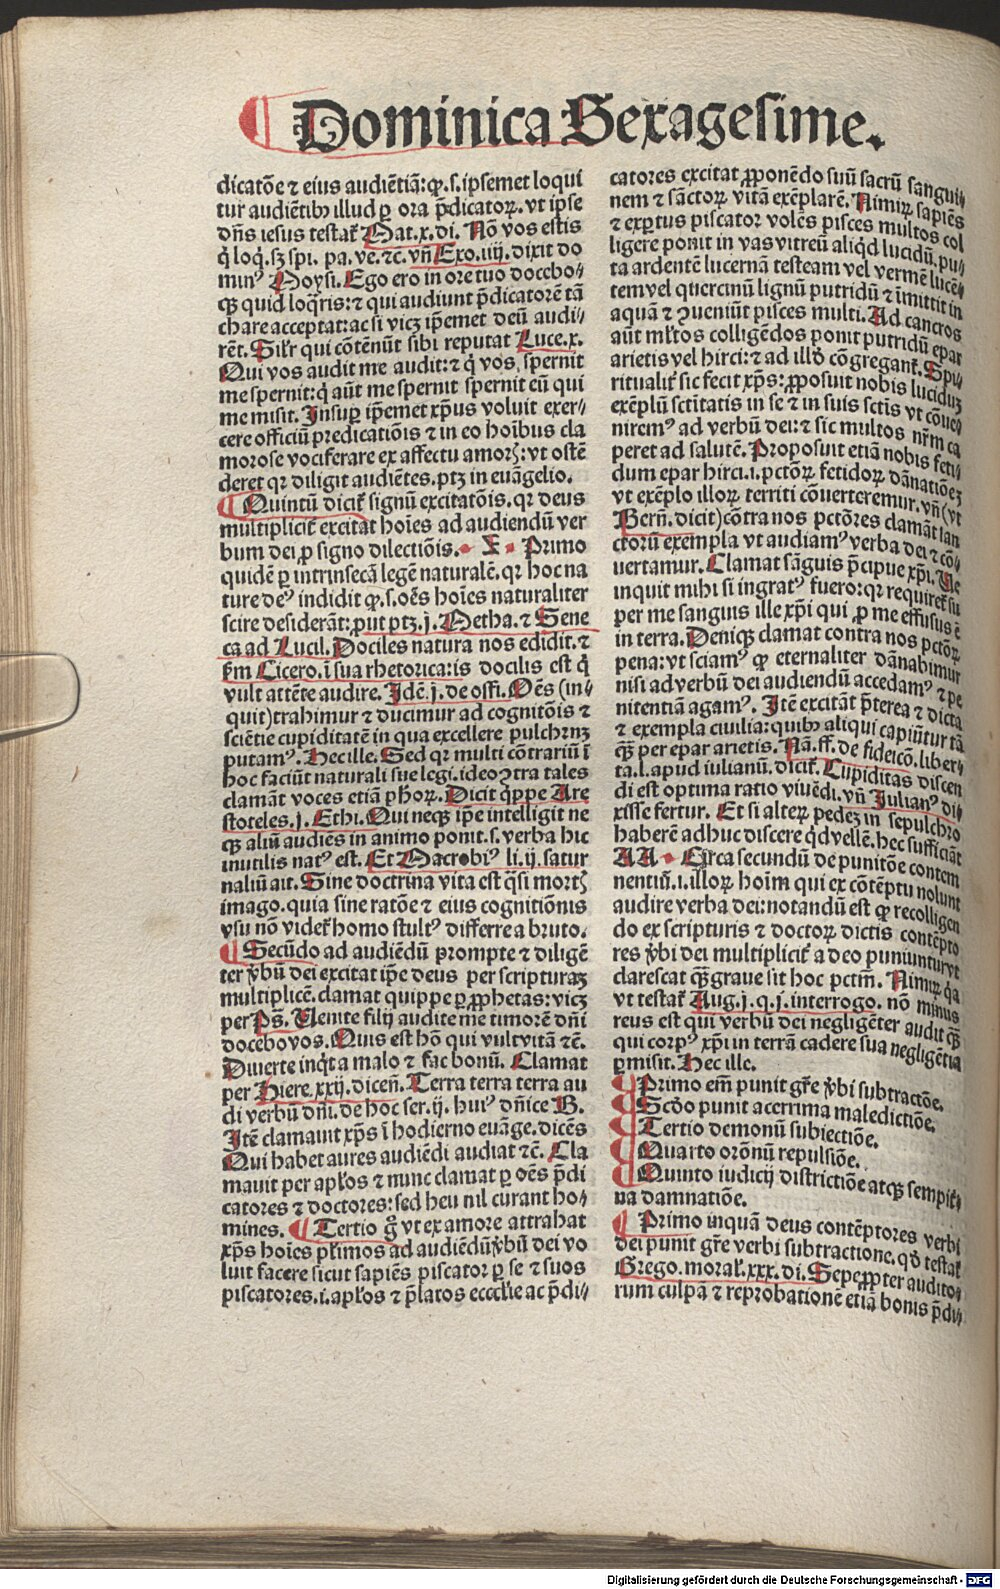 Dominica Sexagesime.
dicatōe ⁊ eius audiētiā: ꝙ .s. ipsemet loqui
tur audiētibꝰ illud ꝑ ora p̄dicatoꝝ. vt ipse
dn̄s iesus testat᷑ Mat.x.di. Nō vos estis
q̇ loq̇. sꝫ spi. pa. ve. ⁊c. vn̄ Exo.iiij. dixit do
minꝰ Moysi. Ego ero in ore tuo docebo⸗
qꝫ quid loq̇ris: ⁊ qui audiunt p̄dicatorē tā
chare acceptat: ac si vicꝫ ip̄emet deū audi⸗
rēt. Silr̄ qui cōtēnūt sibi reputat Luce.x.
Qui vos audit me audit: ⁊ q̇ vos spernit
me spernit: q̇ aūt me spernit spernit eū qui
me misit. Insuꝑ ip̄emet xp̄us voluit exer⸗
cere officiū predicatiōis ⁊ in eo hoībus cla
morose vociferare ex affectu amoꝝ: vt ostē
deret qꝛ diligit audiētes. ptꝫ in euāgelio.
¶ Quintū dicit᷑ signū excitatōis. qꝛ deus
multiplicit᷑ excitat hoīes ad audiendū ver
bum dei ꝓ signo dilectiōis. X Primo
quidē ꝑ intrinsecā legē naturalē. qꝛ hoc na
ture deꝰ indidit ꝙ .s. oēs hoīes naturaliter
scire desiderāt: ꝓut ptꝫ .j. Metha. ⁊ Sene
ca ad Lucil. Dociles natura nos edidit. ⁊
ẜm Cicero. ī sua rhetorica: is docilis est q̇
vult attēte audire. Idē .j. de offi. Oēs (in⸗
quit) trahimur ⁊ ducimur ad cognitōis ⁊
sciētie cupiditatē in qua excellere pulchrūꝫ
putamꝰ. Hec ille. Sed qꝛ multi cōtrariū ī
hoc faciūt naturali sue legi. ideo ꝯtra tales
clamāt voces etiā ph̄oꝝ. Dicit q̇ppe Are
stoteles .j. Ethi. Qui neqꝫ ip̄e intelligit ne
qꝫ aliū audiēs in animo ponit .s. verba hic
inutilis natꝰ est. Et Macrobiꝰ li.ij. satur
naliū ait. Sine doctrina vita est q̄si mortꝭ
imago. quia sine ratōe ⁊ eius cognitiōnis
vsu nō videt᷑ homo stultꝰ differre a bruto.
¶ Secūdo ad audiēdū prompte ⁊ diligē
ter v̇bū dei excitat ip̄e deus per scripturaꝫ
multiplicē. clamat quippe ꝑ ꝓphetas: vicꝫ
per Ps̄. Uenite filij audite me timorē dn̄i
docebo vos. Quis est hō qui vult vitā ⁊c̄.
Diuerte inq̇t a malo ⁊ fac bonū. Clamat
per Hiere.xxij. dicen̄. Terra terra terra au
di verbū dn̄i. de hoc ser.ij. huiꝰ dn̄ice B.
Itē clamauit xp̄s ī hodierno euāge. dicēs
Qui habet aures audiēdi audiat ⁊c̄. Cla
mauit per apl̄os ⁊ nunc clamat ꝑ oēs p̄di
catores ⁊ doctores: sed heu nil curant ho⸗
mines. ¶ Tertio g̊ vt ex amore attrahat
xp̄s hoīes pl̄imos ad audiēdū v̇bū dei vo
luit facere sicut sapiēs piscator ꝑ se ⁊ suos
piscatores .i. apl̄os ⁊ p̄latos eccc̄lie ac p̄di⸗
catores excitat ꝓponēdo suū sacrū sangui⸗
nem ⁊ sāctoꝝ vitā exēplarē. Nimiꝝ sapiēs
⁊ exꝑtus piscator volēs pisces multos col
ligere ponit in vas vitreū aliq̇d lucidū. pu⸗
ta ardentē lucernā testeam vel vermē lucē⸗
tem vel quercinū lignū putridū ⁊ īmittit in
aquā ⁊ ꝯueniūt pisces multi. Ad cancros
aūt ml̄tos colligēdos ponit putridū epar
arietis vel hirci: ⁊ ad illd̓ cōgregant᷑. Spi⸗
ritualit᷑ sic fecit xp̄s: ꝓposuit nobis lucidūꝫ
exēplū sctītatis in se ⁊ in suis sctīs vt cōue⸗
niremꝰ ad verbū dei: ⁊ sic multos nr̄m ca
peret ad salutē. Proposuit etiā nobis feti⸗
dum epar hirci .i. pctōꝝ fetidoꝝ dānatiōeꝫ
vt exēplo illoꝝ territi cōuerteremur. vn̄ (vt
Bern̄. dicit) cōtra nos pctōres clamāt san
ctorū exempla vt audiamꝰ verba dei ⁊ cō⸗
uertamur. Clamat sāguis p̄cipue xp̄i. Ue
inquit mihi si ingratꝰ fuero: qꝛ requiret᷑ su
per me sanguis ille xp̄i qui ꝓ me effusus ē
in terra. Deniqꝫ clamat contra nos pctōꝝ
pena: vt sciamꝰ ꝙ eternaliter dānabimur
nisi ad verbū dei audiendū accedamꝰ ⁊ pe
nitentiā agamꝰ. Itē excitāt p̄terea ⁊ dicta
⁊ exempla ciuilia: quibꝰ aliqui capiūtur tā
qꝫ per epar arietis. Nā .ff. de fideicō. liber⸗
ta. l. apud iulianū. dicit᷑. Cupiditas discen
di est optima ratio viuēdi. vn̄ Julianꝰ di⸗
xisse fertur. Et si alteꝝ pedeꝫ in sepulchro
haberē adhuc discere q̇d vellē. hec sufficiāt
AA Circa secundū de punitōe contem
nentiū .i. illoꝝ hoīm qui ex cōtēptu nolunt
audire verba dei: notandū est ꝙ recolligen
do ex scripturis ⁊ doctoꝝ dictis contēpto
res v̇bi dei multiplicit᷑ a deo puniuntur vt
clarescat qꝫ graue sit hoc pctm̄. Nimiꝝ q̇a
vt testat᷑ Aug. j. q. j. interrogo. nō minus
reus est qui verbū dei negligēter audit qꝫ
qui corpꝰ xp̄i in terrā cadere sua negligētia
ꝑmisit. Hec ille.
¶ Primo em̄ punit gr̄e v̇bi subtractōe.
¶ Scd̓o punit acerrima maledictiōe.
¶ Tertio demonū subiectiōe.
¶ Quarto orōnū repulsiōe.
¶ Quinto iudicij districtiōe atqꝫ sempit᷑⸗
na damnatiōe.
¶ Primo inquā deus contēptores verbi
dei punit gr̄e verbi subtractione. qd̓ testat᷑
Grego. moral̄. xxx. di. Sepe ꝓpter audito⸗
rum culpā ⁊ reprobationē etiā bonis p̄di⸗
Digitalisierung gefördert durch die Deutsche Forschungsgemeinschaft - DFG